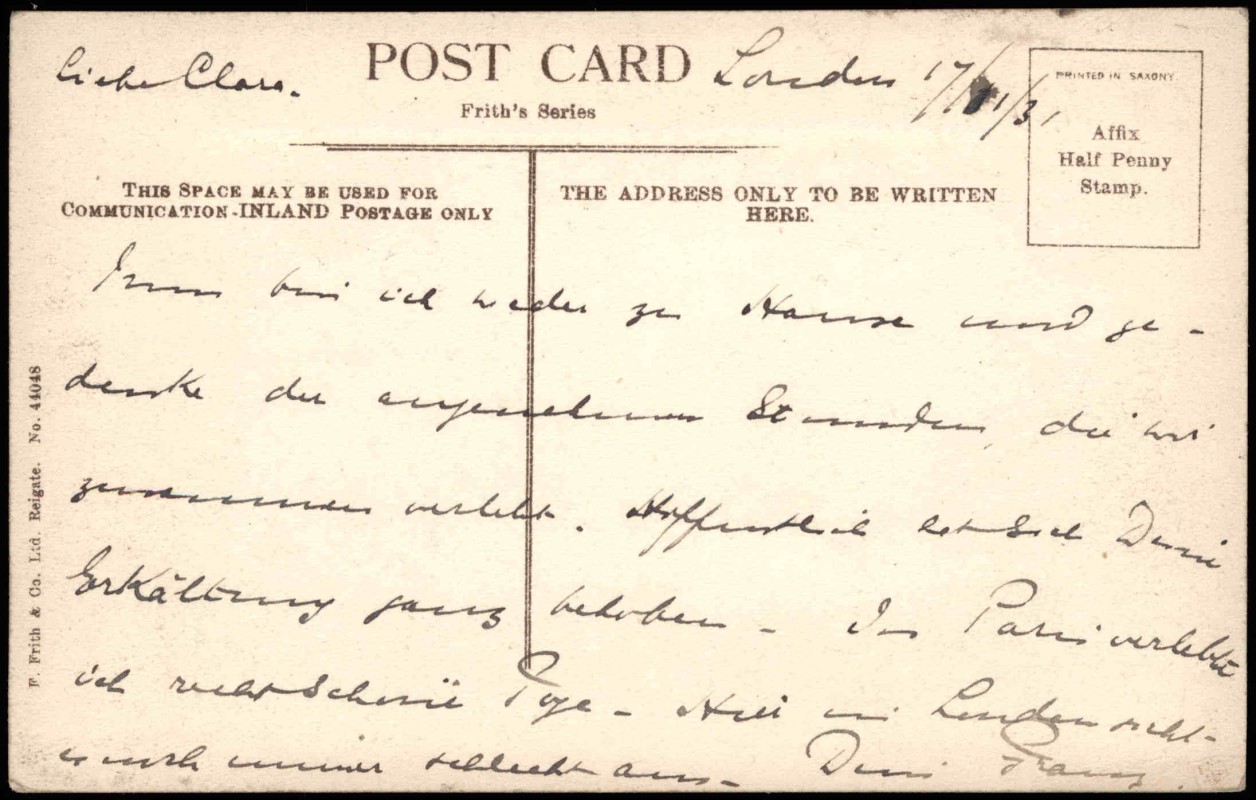 POST CARD
Liebe Clara. London 17/11/31
Frith's Series
PRINTED IN SAXONY.
Affix
Half Penny
Stamp.
THIS SPACE MAY BE USED FOR
COMMUNICATION-INLAND POSTAGE ONLY
THE ADDRESS ONLY TO BE WRITTEN
HERE.
bin ich wieder zu Hause und ge-
denke der angenehmen Stunden, die wir
zusammen verlebt. Hoffentlich hat sich Deine
Erkältung ganz behoben - In Paris verlebte
ich recht schöne Tage - Hier in London sieht-
es noch immer schlecht aus - Dein Franz.
F. Frith & Co. Ltd. Reigate. No. 44048